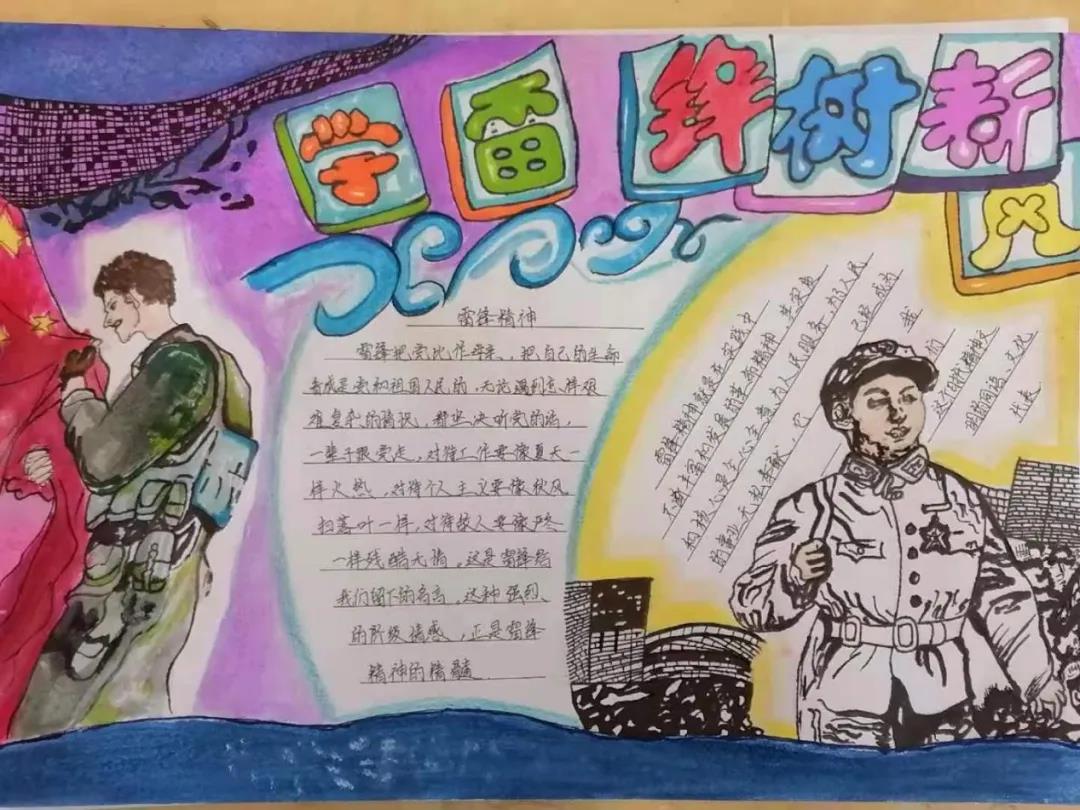 学雷锋树新风
雷锋精神
雷锋把党比作母亲,把自己的生命
看成是党和祖国人民的,无论遇到怎样艰
难复杂的情况,都坚决听党的话,
一辈子跟党走,对待工作要像夏天一
样火热,对待个人主义要像秋风
扫落叶一样,对待敌人要像严冬
一样残酷无情,这是雷锋给
我们留下的名言,这种强烈
的阶级情感,正是雷锋
精神的精髓.
雷锋精神就是在实践中
不断丰富和发展的革命精神,其实质
和核心是全心全意为人民服务,为了人民
的事业无私奉献,它已经成为
我们
这个时代精神文
明的同义语、文化
代表